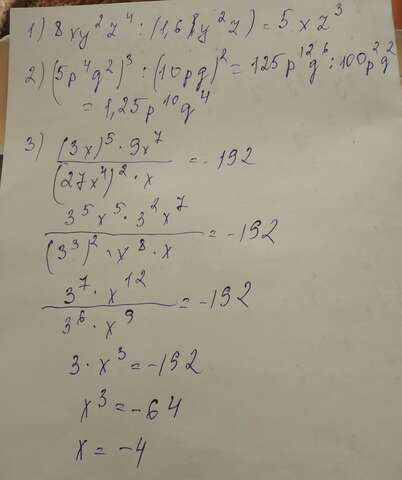 1) 8xy²z⁴ : (1,6y²z) = 5xz³
2) (5p⁴g²)³ : (10pg)² = 125p¹²g⁶ : 100p²g²
= 1,25p¹⁰g⁴
3) (3x)⁵ · 9x⁷ / (27x⁴)² · x = -192
3⁵x⁵ · 3²x⁷ / (3³)² · x⁸ · x = -192
3⁷ · x¹² / 3⁶ · x⁹ = -192
3 · x³ = -192
x³ = -64
x = -4